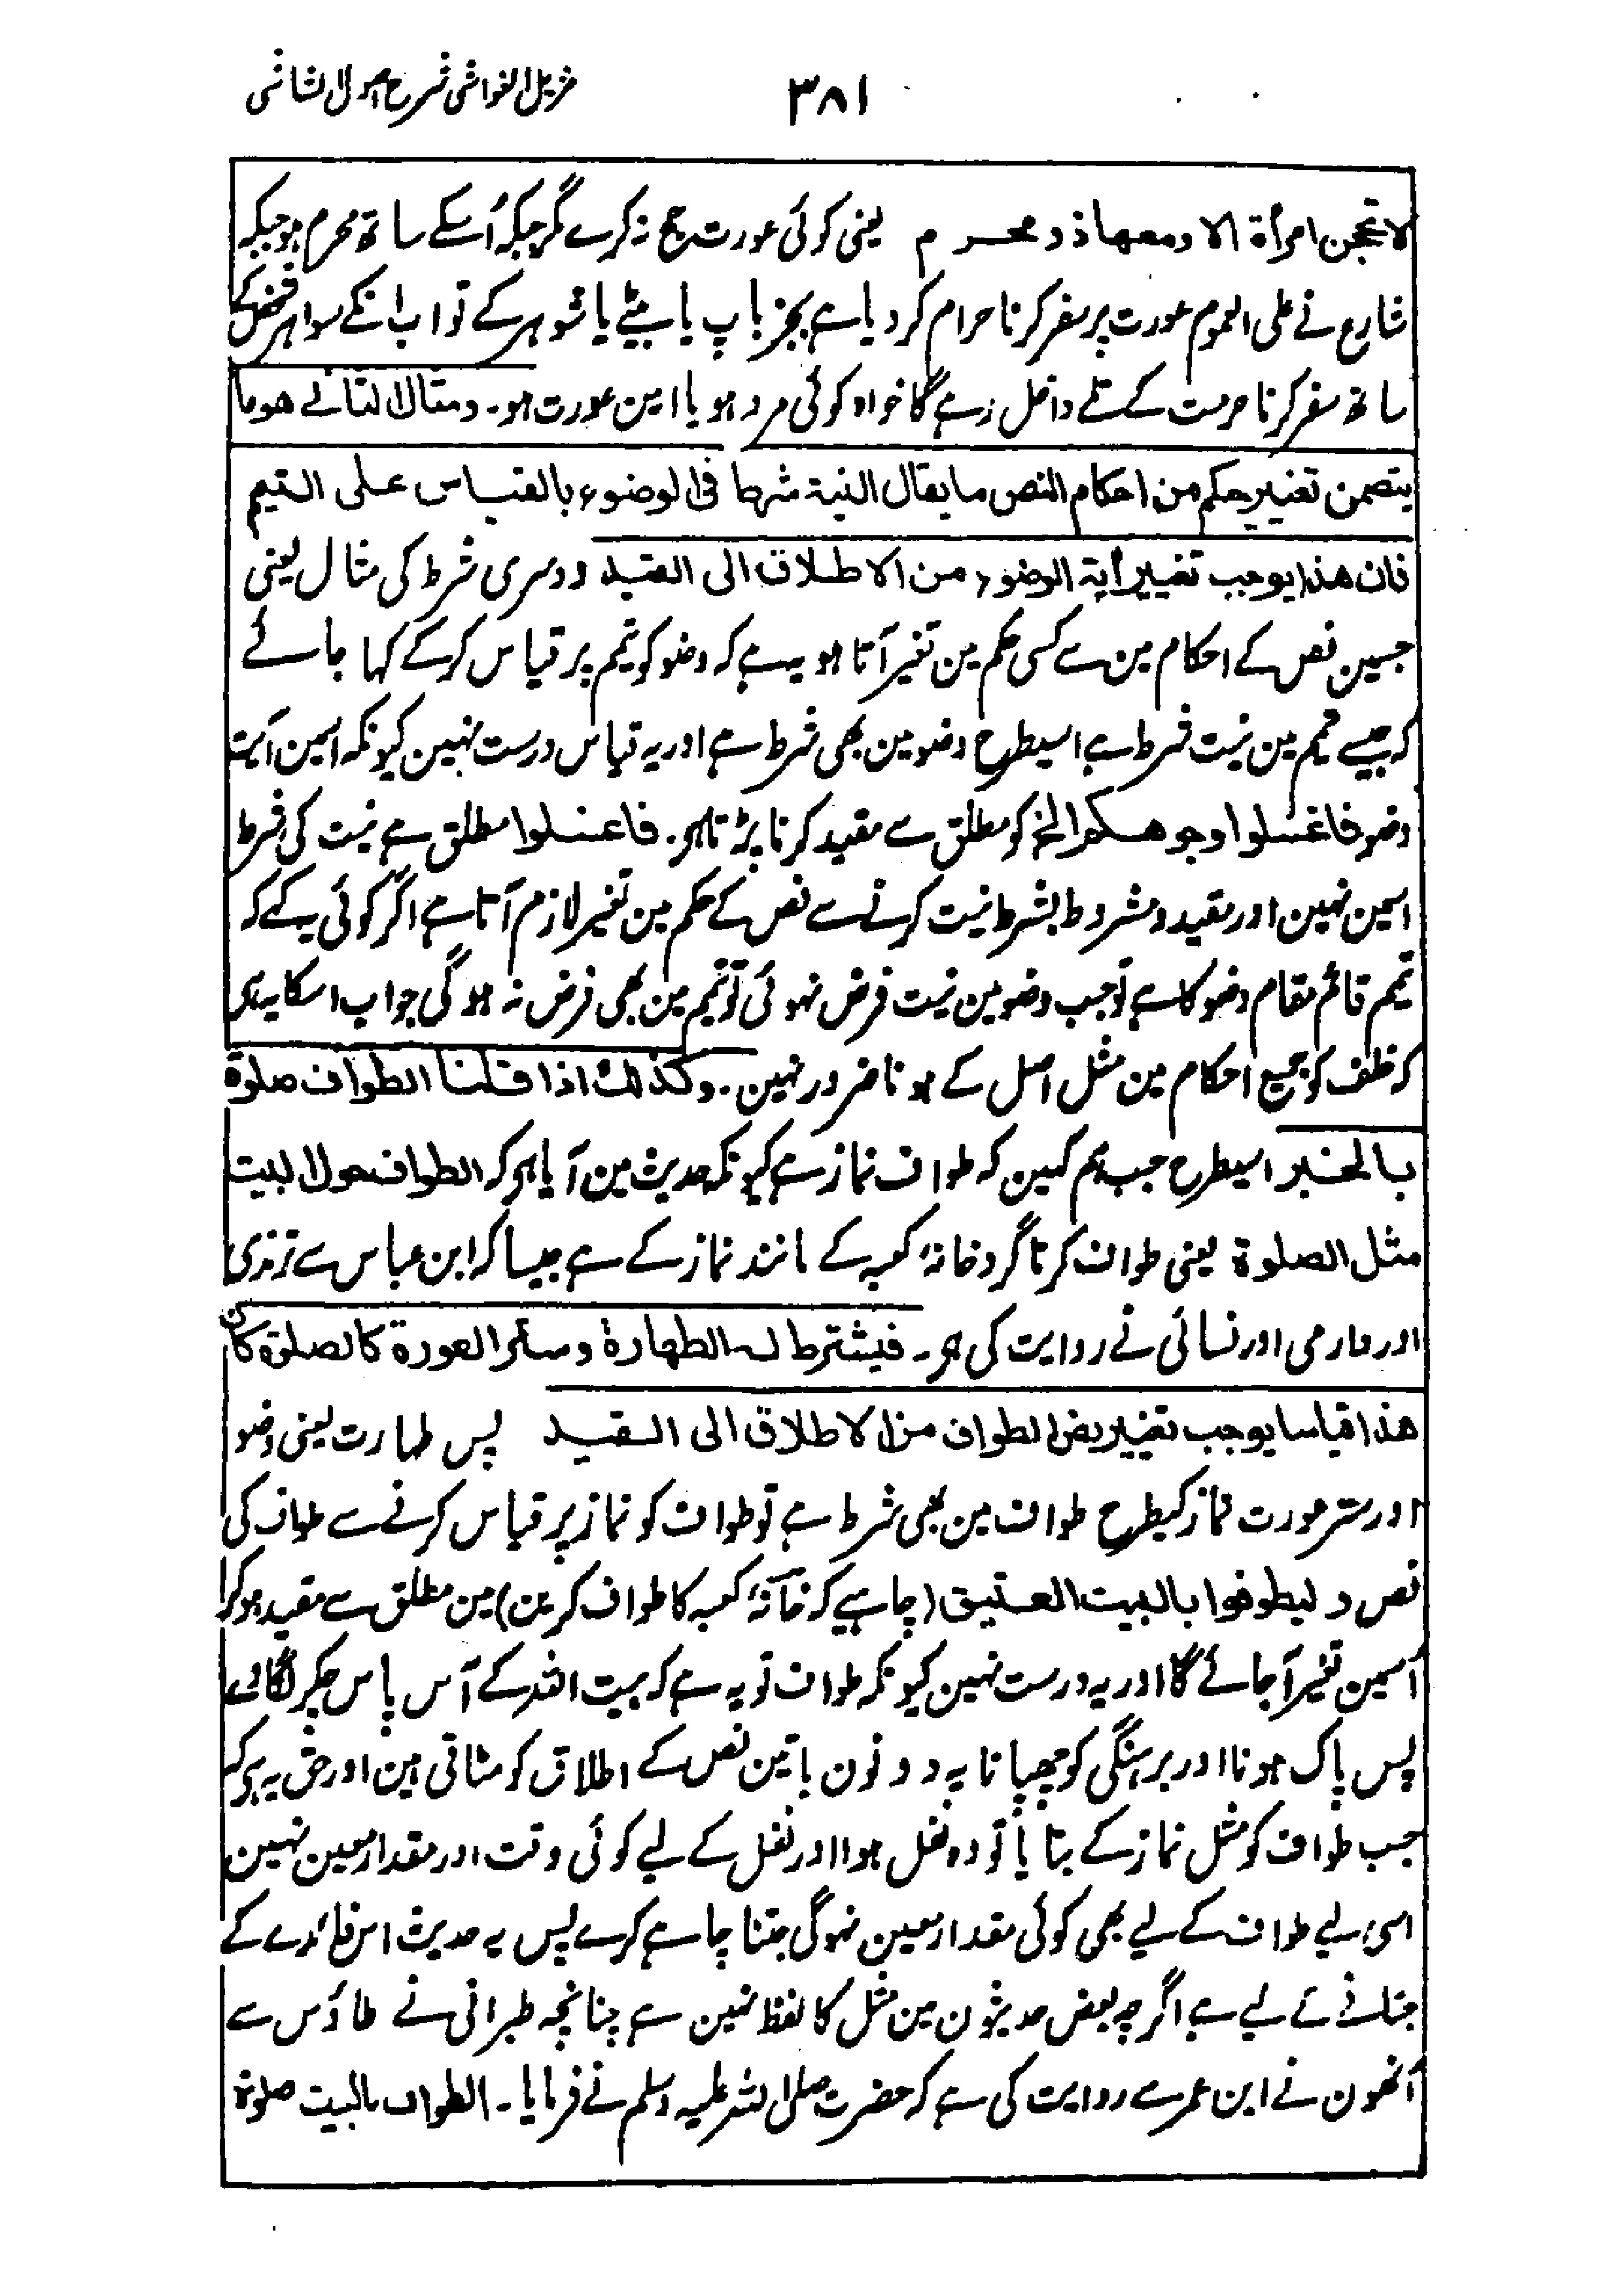 مزیل الغواشی شرح اصول الشاشی
۳۸۱
لا تحجن امرأة الا ومعها ذو محرم یعنی کوئی عورت حج نہ کرے مگر جبکہ اُسکے ساتھ محرم ہو جبکہ
شارع نے علی العموم عورت پر سفر کرنا حرام کر دیا ہے بجز باپ یا بیٹے یا شوہر کے تو اب انکے سوا ہر شخص کے
ساتھ سفر کرنا حرمت کے تلے داخل رہے گا خواہ کوئی مرد ہو یا امین عورت ہو۔ ومثال الثانی هو ما
یتضمن تغییر حکم من احکام النص ما یقال النیة شرط فی الوضوء بالقیاس علی التیمم
فان هذا یوجب تغییر أیة الوضوء من الاطلاق الی القید دوسری شرط کی مثال یعنی
جسمین نص کے احکام مین سے کسی حکم مین تغیر آتا ہو یہ ہے کہ وضو کو تیمم پر قیاس کرکے کہا جائے
کہ جیسے تیمم مین نیت شرط ہے اسیطرح وضو مین بھی شرط ہے اور یہ قیاس درست نہین کیونکہ اسمین آیت
وضو فاغسلوا وجوهکم الخ کو مطلق سے مقید کرنا پڑتا ہی۔ فاغسلوا مطلق ہے نیت کی شرط
اسمین نہین اور مقید و مشروط بشرط نیت کرنے سے نص کے حکم مین تغیر لازم آتا ہے اگر کوئی یہ کہے کہ
تیمم قائم مقام وضو کا ہے تو جب وضو مین نیت فرض نہوئی تو تیمم مین بھی فرض نہ ہوگی جواب اسکا یہ ہی
کہ خلف کو جمیع احکام مین مثل اصل کے ہونا ضرور نہین۔ وکذلك اذا قلنا الطواف صلوة
بالخبر اسیطرح جب ہم کہین کہ طواف نماز ہے کیونکہ حدیث مین آیا ہی کہ الطواف حول البیت
مثل الصلوة یعنی طواف کرنا گرد خانۂ کعبہ کے مانند نماز کے ہے جیسا کہ ابن عباس سے ترمذی
اور دارمی اور نسائی نے روایت کی ہی۔ فیشترط له الطهارة وستر العورة کالصلوة کان
هذا قیاسا یوجب تغییر نص الطواف من الاطلاق الی القید پس طہارت یعنی وضو
اور ستر عورت نماز کیطرح طواف مین بھی شرط ہے تو طواف کو نماز پر قیاس کرنے سے طواف کی
نص ولیطوفوا بالبیت العتیق (چاہیے کہ خانۂ کعبہ کا طواف کرین) مین مطلق سے مقید ہو کر
اُسمین تغیر آجائے گا اور یہ درست نہین کیونکہ طواف تو یہ ہے کہ بیت اللہ کے آس پاس چکر لگائے
پس پاک ہونا اور برہنگی کو چھپانا یہ دونون باتین نص کے اطلاق کو مٹاتی ہین اور حق یہ ہی کہ
جب طواف کو مثل نماز کے بتایا تو وہ نفل ہوا اور نفل کے لیے کوئی وقت اور مقدار معین نہین
اسی لیے طواف کے لیے بھی کوئی مقدار معین نہوگی جتنا چاہے کرے پس یہ حدیث اس فائدے کے
جتانے کے لیے ہے اگرچہ بعض حدیثون مین مثل کا لفظ نہین ہے چنانچہ طبرانی نے طاؤس سے
اُنھون نے ابن عمر سے روایت کی ہے کہ حضرت صلی اللہ علیہ وسلم نے فرمایا۔ الطواف بالبیت صلوة